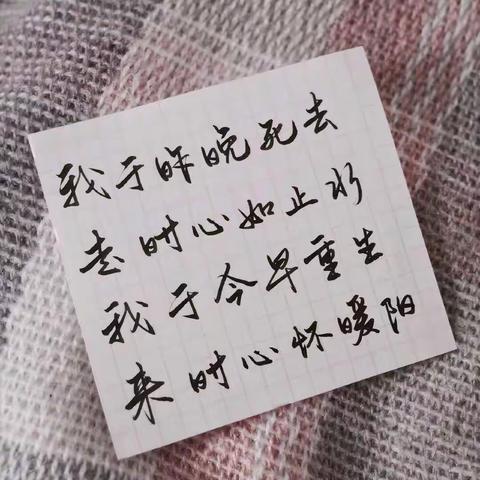 我于昨晚死去
去时心如止水
我于今早重生
来时心怀暖阳